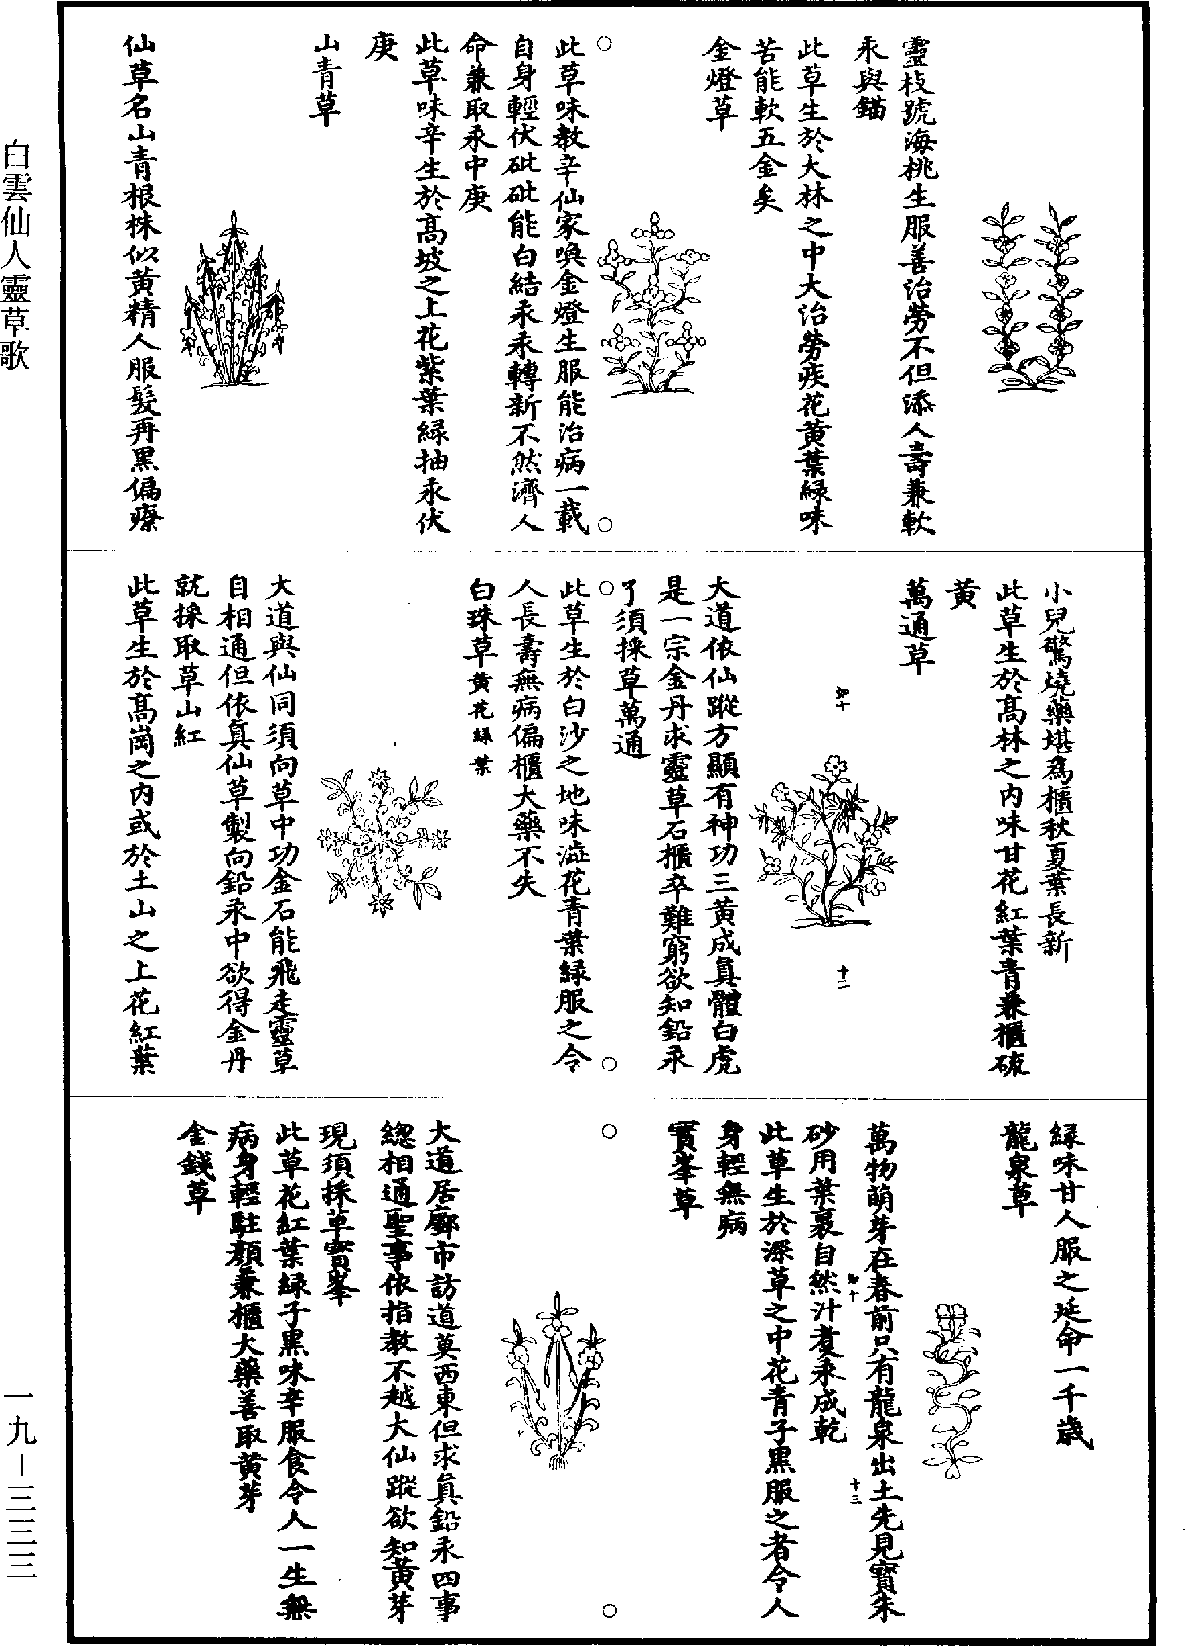 白雲仙人靈草歌
靈枝號海桃生服善治勞不但添人壽兼軟
汞與錨
此草生於大林之中大治勞疾花黃葉綠味
苦能軟五金矣
金燈草
此草味教辛仙家喚金燈生服能治病一載
自身輕伏砒砒能白結汞汞轉新不然濟人
命兼取汞中庚
此草味辛生於高坡之上花紫葉綠抽汞伏
庚
山青草
仙草名山青根株似黃精人服髮再黑偏療
小兒驚燒藥堪為櫃秋夏葉長新
此草生於高林之內味甘花紅葉青兼櫃硫
黃
萬通草
大道依仙蹤方顯有神功三黃成真體白虎
是一宗金丹求靈草石櫃卒難窮欲知鉛汞
了須採草萬通
此草生於白沙之地味澁花青葉綠服之令
人長壽無病偏櫃大藥不失
白珠草黃花綠葉
大道與仙同須向草中功金石能飛走靈草
自相通但依真仙草製向鉛汞中欲得金丹
就採取草山紅
此草生於高崗之內或於土山之上花紅葉
綠味甘人服之延命一千歲
龍泉草
萬物萌芽在春前只有龍泉出土先見寶朱
砂用葉裹自然汁煑汞成乾
此草生於深草之中花青子黑服之者令人
身輕無病
寶峯草
大道居鄽市訪道莫西東但求真鉛汞四事
總相通聖事依指教不越大仙蹤欲知黃芽
現須採草寶峯
此草花紅葉綠子黑味辛服食令人一生無
病身輕駐顏兼櫃大藥善取黃芽
金錢草
如十
十二
如十
十三
一九－三三三